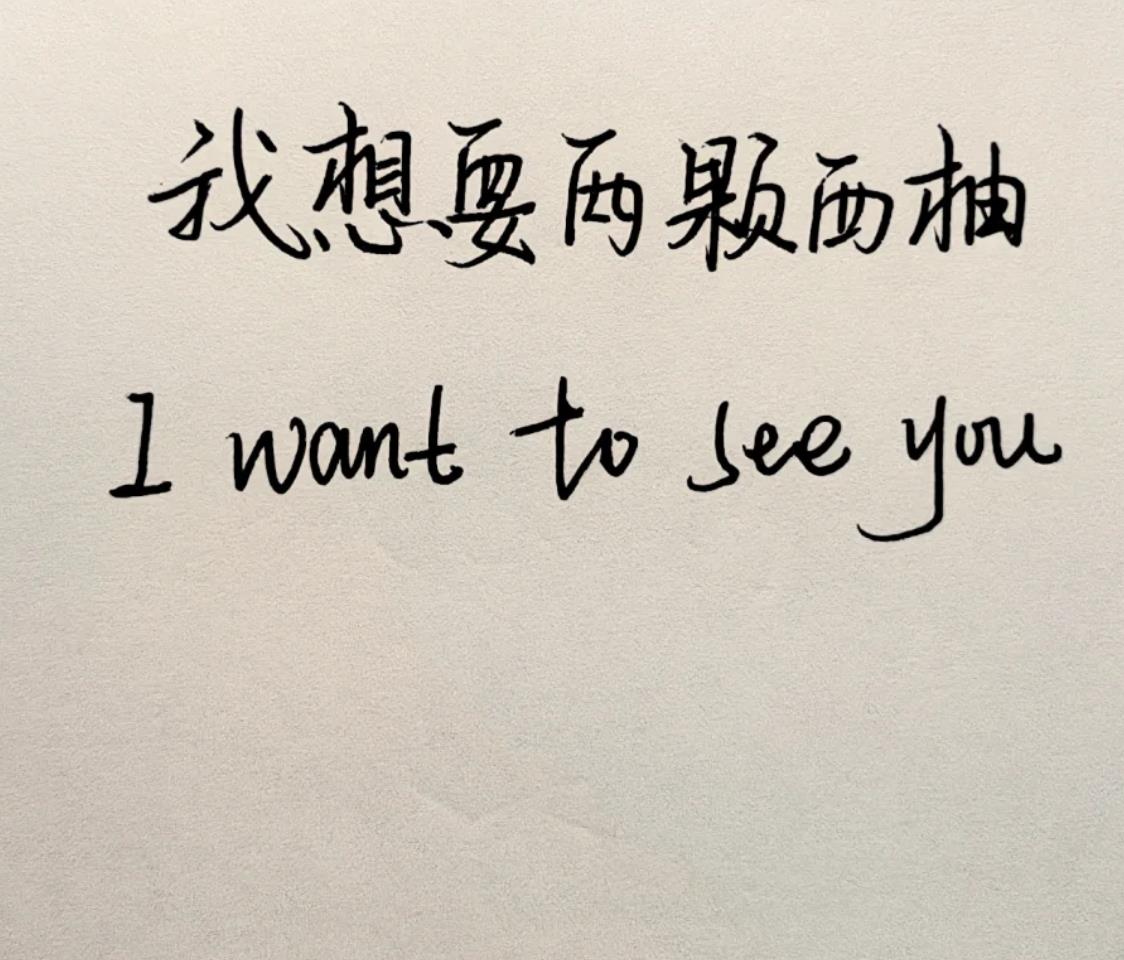 我想要两颗西柚
I want to see you